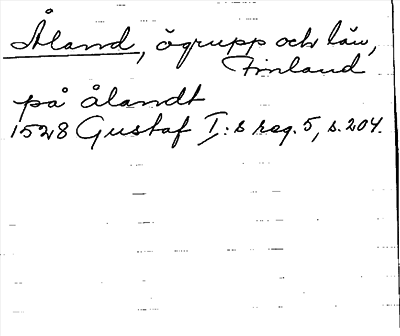 Åland, ögrupp och län,
Finland
på ålandt
1528 Gustaf I:s reg. 5, s. 204.